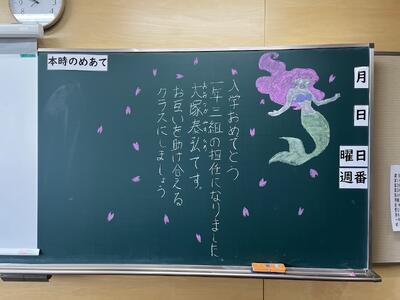 本時のめあて
入学おめでとう
一年三組の担任になりました
大塚泰弘です。
お互いを助け合える
クラスにしましょう
月
日
曜日
週番